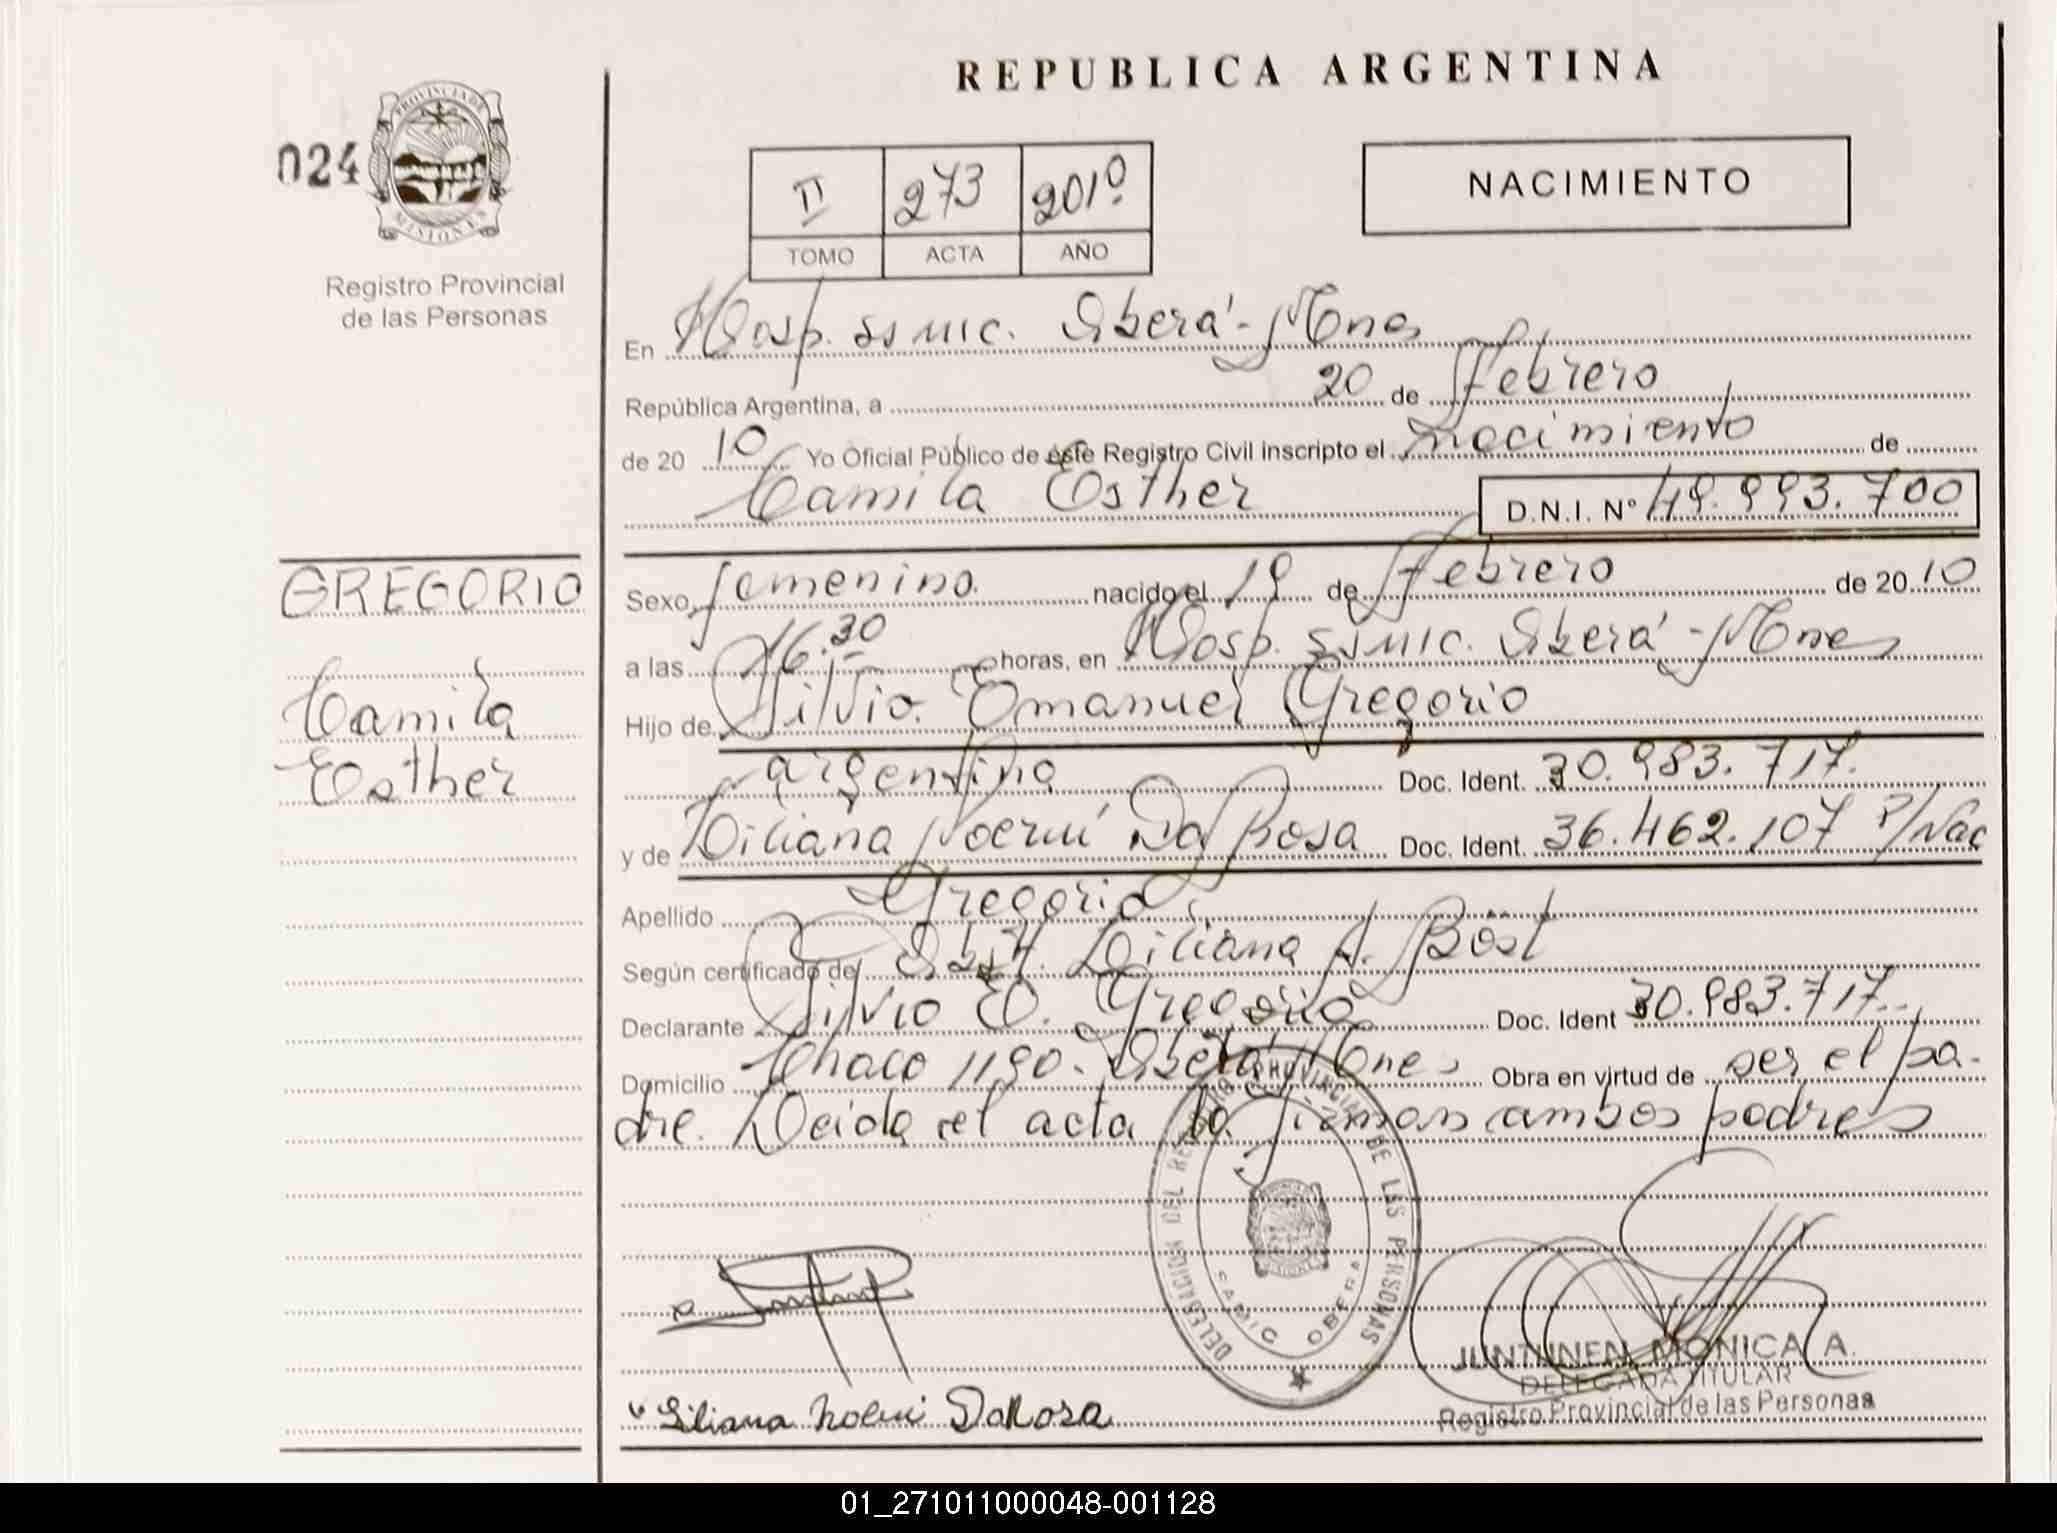 REPUBLICA ARGENTINA
024
PROVINCIA DE
MISIONES
Registro Provincial
de las Personas
II 273 2010
TOMO ACTA AÑO
NACIMIENTO
En Hosp. SAMIC. Oberá-Mnes
República Argentina, a 20 de Febrero
de 20 10 Yo Oficial Público de éste Registro Civil inscripto el nacimiento de
Camila Esther D.N.I. Nº 49.993.700
GREGORIO
Camila
Esther
Sexo femenino. nacido el 19 de febrero de 20 10
a las 16.30 horas, en Hosp. SAMIC. Oberá-Mnes
Hijo de Silvio Emanuel Gregorio
argentino Doc. Ident. 30.983.717.
y de Liliana Noemí Da Rosa Doc. Ident. 36.462.107 P/Nac
Apellido Gregorio
Según certificado de Obst. Liliana A. Böst
Declarante Silvio E. Gregorio Doc. Ident 30.983.717.
Domicilio Chaco 1190. Oberá Mnes Obra en virtud de ser el pa-
dre. Leida el acta la firman ambos padres
DELEGACION DEL REGISTRO PROVINCIAL DE LAS PERSONAS
SAMIC OBERA
JUNTUNEN, MONICA A.
DELEGADA TITULAR
Registro Provincial de las Personas
Liliana Noemi DaRosa
01_271011000048-001128